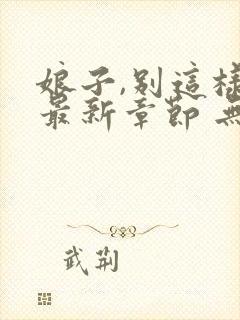 娘子,別這樣
最新章節 無
武荊